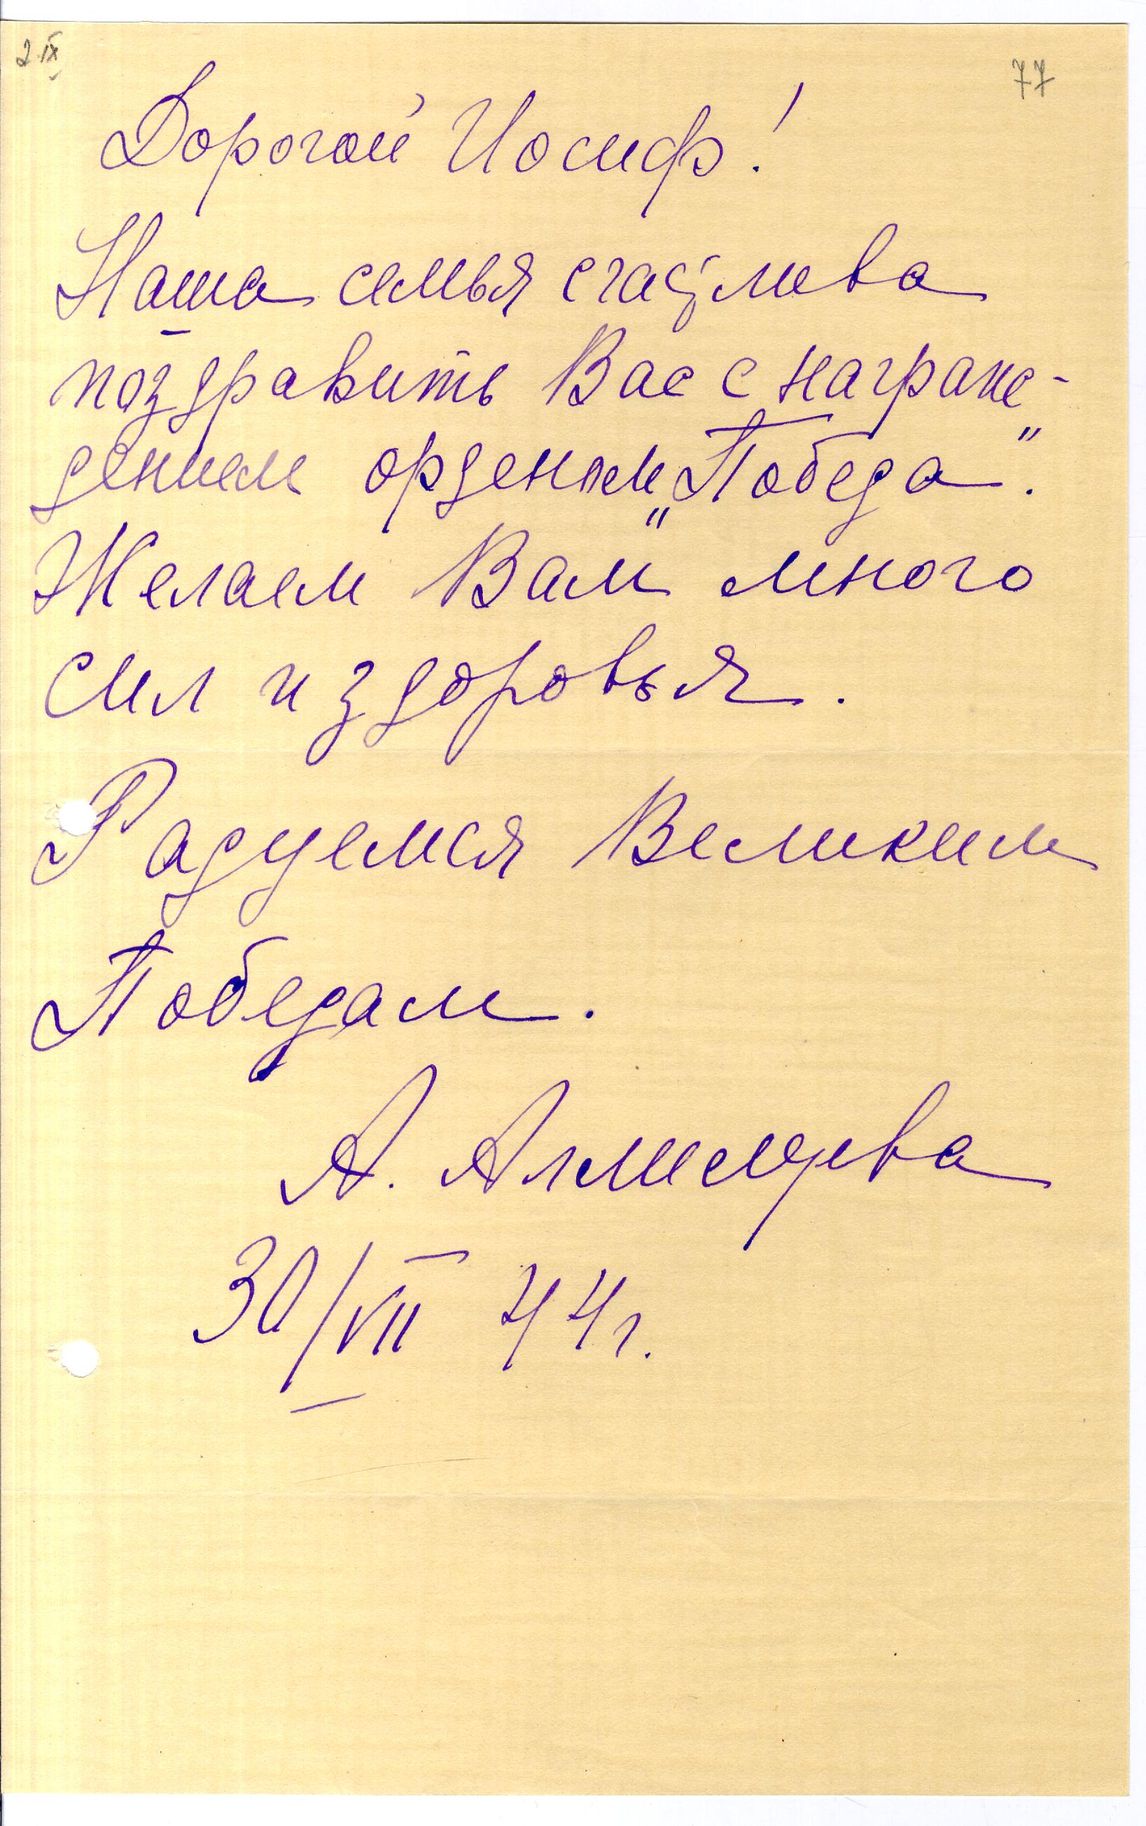 2 IX
77
Дорогой Иосиф!
Наша семья счасмлива
поздравить Вас с награж-
дением орденом „Победа".
Желаем Вам много
сил и здоровья.
Радуемся Великим
Победам.
А.
30/VII 44г.